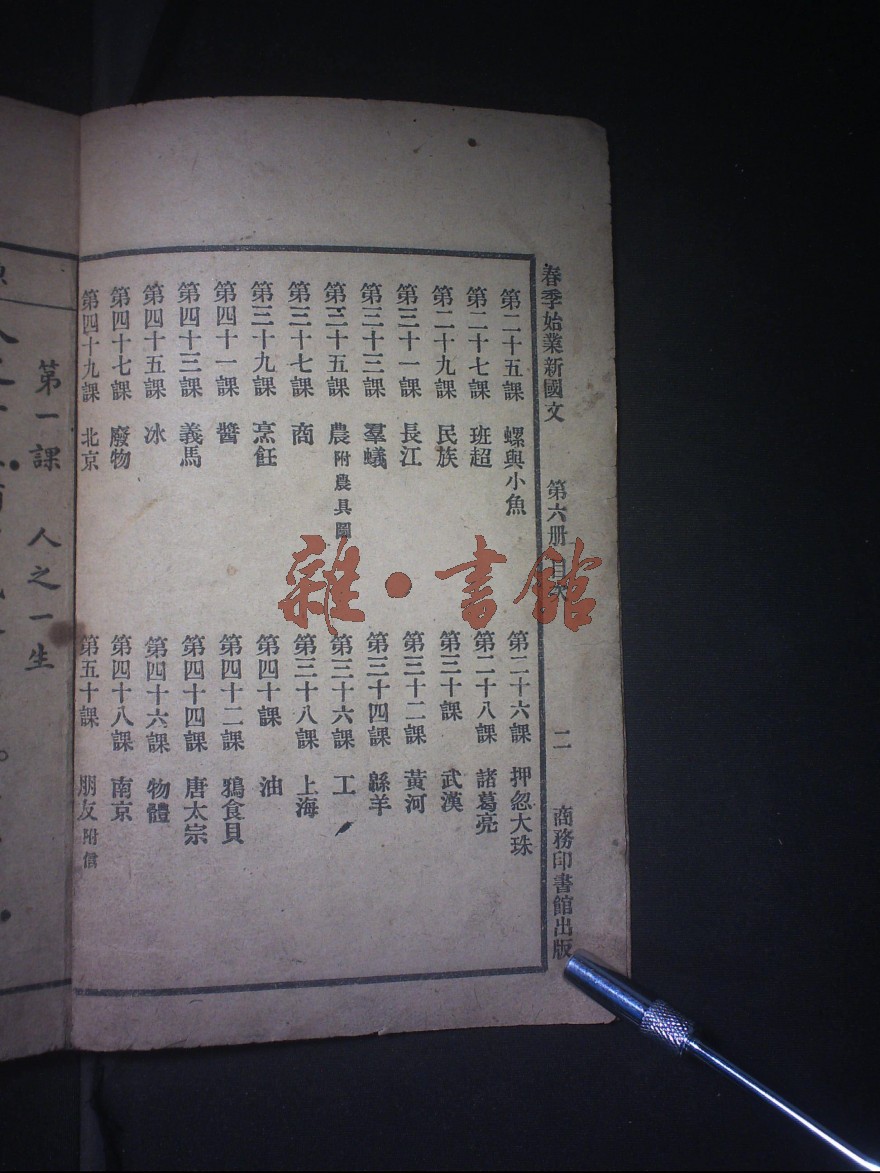 春季始業新國文　第六册　目次　二　商務印書館出版
第二十五課　螺與小魚　第二十六課　押忽大珠
第二十七課　班超　第二十八課　諸葛亮
第二十九課　民族　第三十課　武漢
第三十一課　長江　第三十二課　黃河
第三十三課　羣蟻　第三十四課　緜羊
第三十五課　農附農具圖　第三十六課　工
第三十七課　商　第三十八課　上海
第三十九課　烹飪　第四十課　油
第四十一課　醬　第四十二課　鴉食貝
第四十三課　義馬　第四十四課　唐太宗
第四十五課　冰　第四十六課　物體
第四十七課　廢物　第四十八課　南京
第四十九課　北京　第五十課　朋友附信
第一課　人之一生
雜·書館